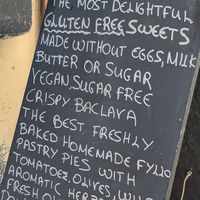 THE MOST DELIGHTFUL
GLUTEN FREE SWEETS
MADE WITHOUT EGGS, MILK
BUTTER OR SUGAR
VEGAN SUGAR FREE
CRISPY BACLAVA
THE BEST FRESHLY
BAKED HOMEMADE FYLLO
PASTRY PIES WITH
TOMATOES, OLIVES, WILD
AROMATIC HERBS
FRESH